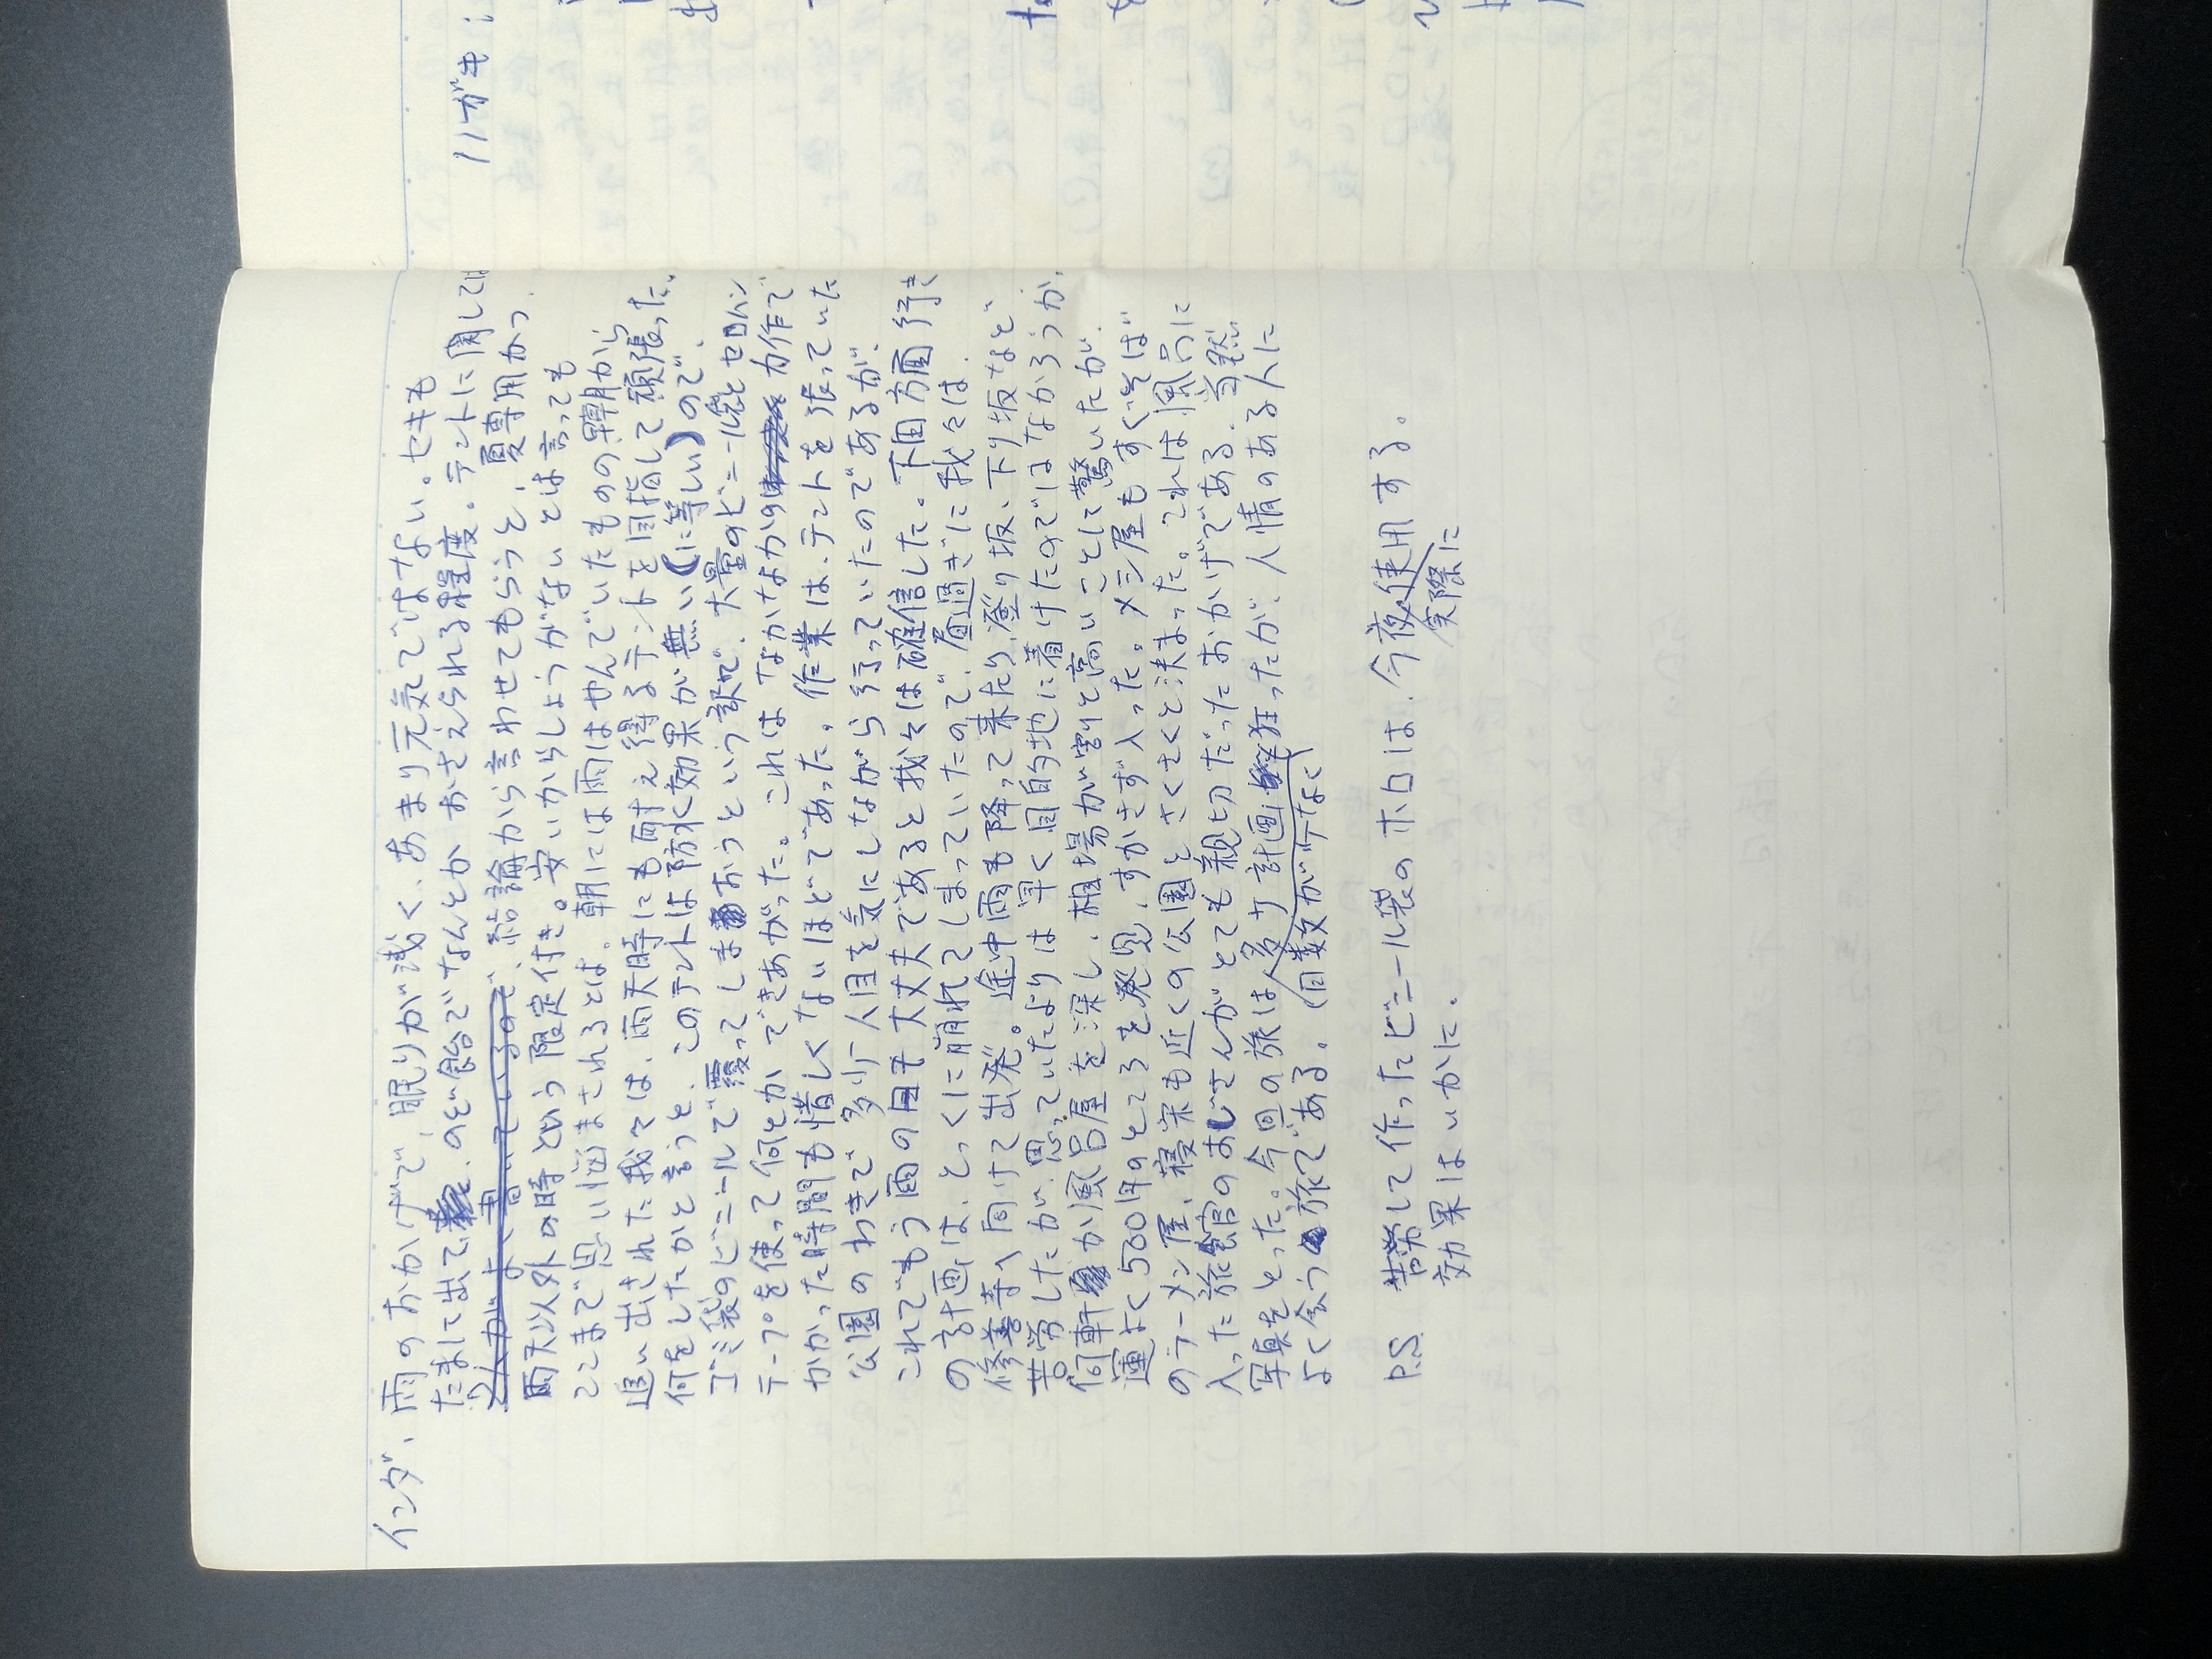 インダ、雨のおかげで、眠りが浅く、あまり元気ではない。セキも
たまに出て、のど飴でなんとかおさえられる程度。テントに関しては
2人がよく書いているので、結論から言わせてもらうと、夏専用かつ
雨天以外の時という限定付き。安いからしょうがないとは言っても
ここまで思い悩まされるとは。朝には雨はやんでいたものの
追い出された我々は、雨天時にも耐え得るテントを目指して頑張った。
何をしたかと言うと、このテントは防水効果が無い(に等しい)ので、
ゴミ袋のビニールで覆ってしまおうという訳で、大量のビニール袋とセロハン
テープを使って何とかできあがった。これはなかなかの力作で
かかった時間も惜しくないほどであった。作業は、テントを張っていた
公園のわきで多少人目を気にしながら行っていたのであるが、
これでもう雨の日も大丈夫であると我々は確信した。下田方面行き
の計画は、とっくに崩れてしまっていたので、昼過ぎに我々は、
修善寺へ向けて出発。途中雨も降って来たり、登り坂、下り坂などで
苦労したが、思っていたよりは早く目的地に着けたのではなかろうか。
何軒か風呂屋を探し、相場が割と高いことして驚いたが、
運よく500円のところを発見、すかさず入った。メシ屋もすぐそば
のラーメン屋、寝床も近くの公園とさくさくと決まった。これは風呂に
入った旅館のおじさんがとても親切だったおかげである。当然
写真をとった。今回の旅は人多少計画狂ったが、人情のある人に
よく会う旅である。(日数が少なく
P.S. 苦労して作ったビニール袋のホロは、今夜使用する。
実際に
効果はいかに。
ハガキ